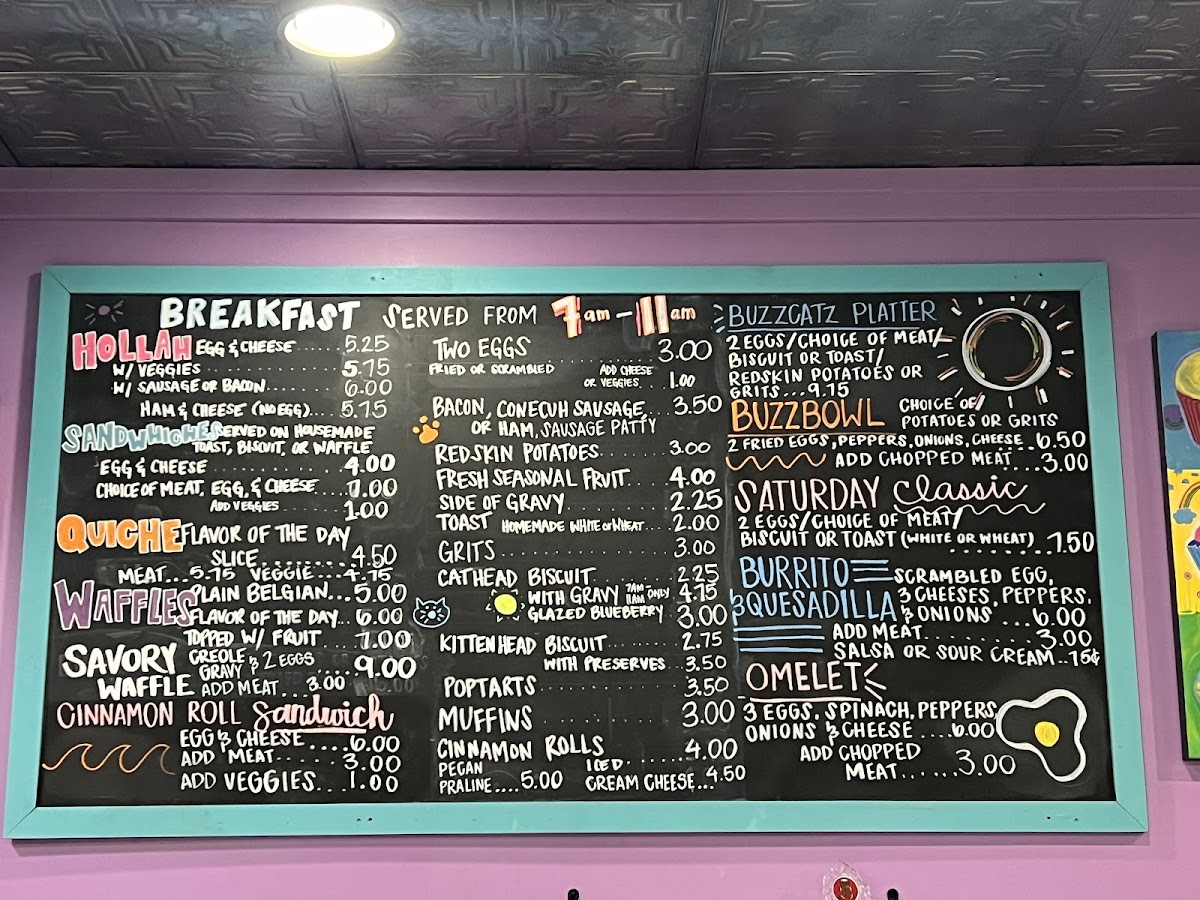 BREAKFAST SERVED FROM 7am - 11am
HOLLAH EGG & CHEESE ...... 5.25
W/ VEGGIES ...... 5.75
W/ SAUSAGE OR BACON ...... 6.00
HAM & CHEESE (NO EGG) .... 5.75
SANDWHICHES SERVED ON HOUSEMADE
TOAST, BISCUIT, OR WAFFLE
EGG & CHEESE ...... 4.00
CHOICE OF MEAT, EGG, & CHEESE .... 7.00
ADD VEGGIES ...... 1.00
QUICHE FLAVOR OF THE DAY
SLICE ...... 4.50
MEAT... 5.75 VEGGIE... 4.75
WAFFLES PLAIN BELGIAN... 5.00
FLAVOR OF THE DAY... 6.00
TOPPED W/ FRUIT ... 7.00
SAVORY WAFFLE CREOLE
GRAVY & 2 EGGS ... 9.00
ADD MEAT... 3.00
CINNAMON ROLL Sandwich
EGG & CHEESE .... 6.00
ADD MEAT ...... 3.00
ADD VEGGIES... 1.00
TWO EGGS 3.00
FRIED OR SCRAMBLED
ADD CHEESE
OR VEGGIES... 1.00
BACON, CONECUH SAUSAGE, ... 3.50
OR HAM, SAUSAGE PATTY
REDSKIN POTATOES ...... 3.00
FRESH SEASONAL FRUIT ... 4.00
SIDE OF GRAVY 2.25
TOAST HOMEMADE WHITE or WHEAT .... 2.00
GRITS ...... 3.00
CATHEAD BISCUIT ...... 2.25
WITH GRAVY 7AM 11AM ONLY 4.75
GLAZED BLUEBERRY 3.00
KITTENHEAD BISCUIT ...... 2.75
WITH PRESERVES ... 3.50
POPTARTS ...... 3.50
MUFFINS ...... 3.00
CINNAMON ROLLS
ICED ...... 4.00
PECAN
PRALINE.... 5.00
CREAM CHEESE... 4.50
BUZZCATZ PLATTER
2 EGGS/CHOICE OF MEAT/
BISCUIT OR TOAST/
REDSKIN POTATOES OR
GRITS... 9.75
BUZZBOWL CHOICE OF
POTATOES OR GRITS
2 FRIED EGGS, PEPPERS, ONIONS, CHEESE .. 6.50
ADD CHOPPED MEAT ... 3.00
SATURDAY Classic
2 EGGS/CHOICE OF MEAT/
BISCUIT OR TOAST (WHITE OR WHEAT)
....... 7.50
BURRITO SCRAMBLED EGG,
& QUESADILLA 3 CHEESES, PEPPERS,
& ONIONS ... 6.00
ADD MEAT ...... 3.00
SALSA OR SOUR CREAM .. 75¢
OMELET
3 EGGS, SPINACH, PEPPERS,
ONIONS & CHEESE .... 6.00
ADD CHOPPED
MEAT...... 3.00